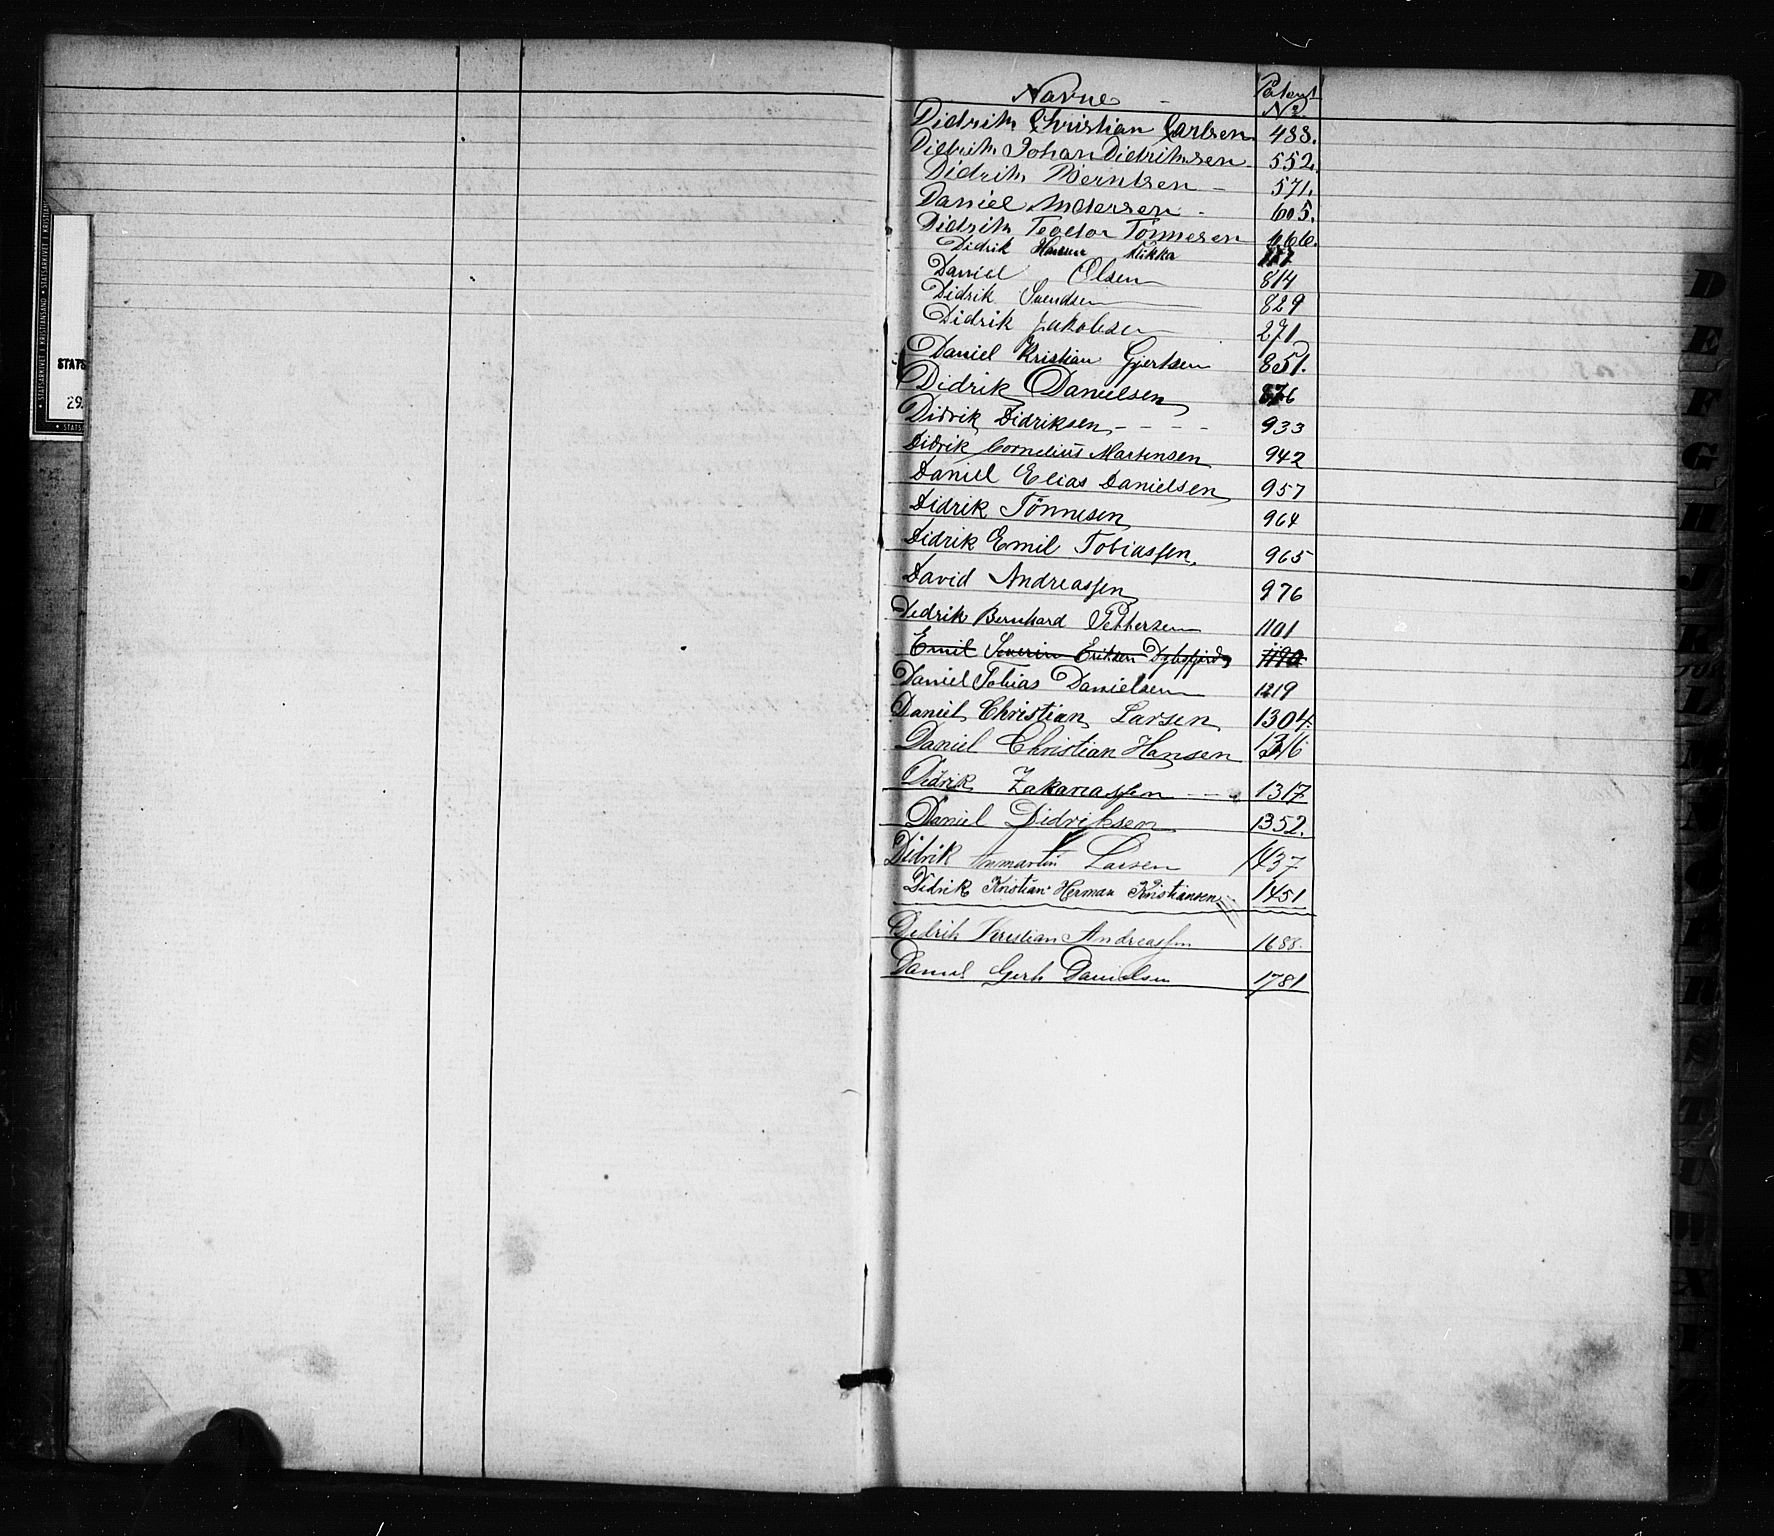 STATSARKIVET I KRISTIANSAND • STATSARKIVET I KRISTIAN
STATS
29.
• STATSA
Navne Patent
No.
Didrik Christian Carlsen 488.
Didrik Johan Didriksen 552.
Didrik Berntsen 571.
Daniel Andersen 605.
Didrik Teodor Tönnesen 666.
Didrik Hansen
Daniel Olsen 814
Didrik Svendsen 829
Didrik Jakobsen 271
Daniel Kristian Gjertsen 851.
Didrik Danielsen 876
Didrik Didriksen 933
Didrik Cornelius Martensen 942
Daniel Elias Danielsen 957
Didrik Tönnesen 964
Didrik Emil Tobiassen. 965
David Andreassen 976
Didrik Bernhard Pettersen 1101
Emil Severin Eriksen 1190
Daniel Tobias Danielsen 1219
Daniel Christian Larsen 1304.
Daniel Christian Hansen 1316
Didrik Zakareassen 1317
Daniel Didriksen 1352.
Didrik Larsen 1437
Didrik Kristian Herman Kristiansen 1451
Didrik Kristian Andreassen 1688.
Daniel Gerh Danielsen 1781
D
E
F
G
H
J
K
L
M
N
O
P
R
S
T
U
W
X
Y
Z